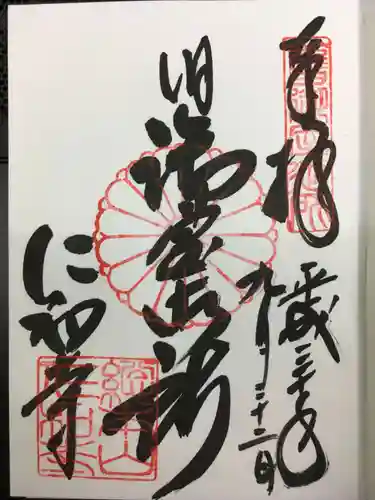 奉拝
平成三十年
九月二十二日
旧御室御所
仁和寺